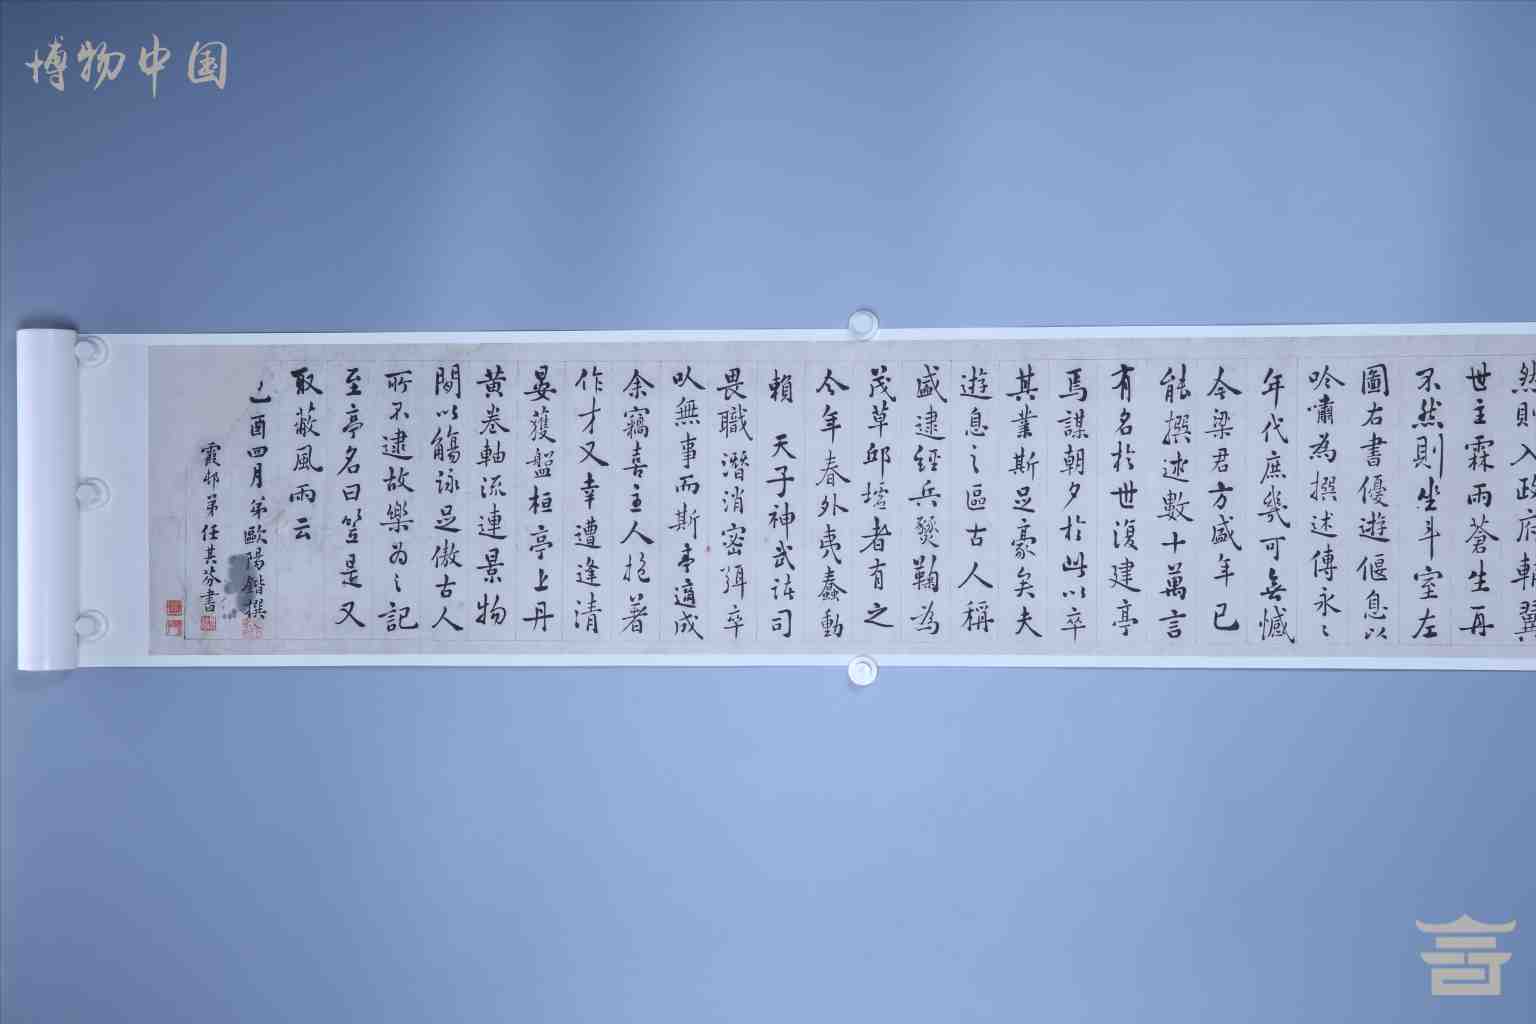 博物中国
然則入政府輔翼
世主霖雨蒼生再
不然則坐斗室左
圖右書優遊偃息以
吟嘯為撰述傳永〻
年代庶幾可無憾
今梁君方盛年已
能撰述數十萬言
有名於世復建亭
焉謀朝夕於此以卒
其業斯足豪矣夫
遊息之區古人稱
盛逮經兵燹鞠為
茂草邱墟者有之
今年春外夷蠢動
賴 天子神武諸司
畏職潛消密弭卒
以無事而斯亭適成
余竊喜主人抱著
作才又幸遭逢清
晏獲盤桓亭上丹
黄卷軸流連景物
間以觴詠足傲古人
所不逮故樂為之記
至亭名曰笠是又
取蔽風雨云
乙酉四月弟歐陽鍇撰
霞邨弟任其芬書